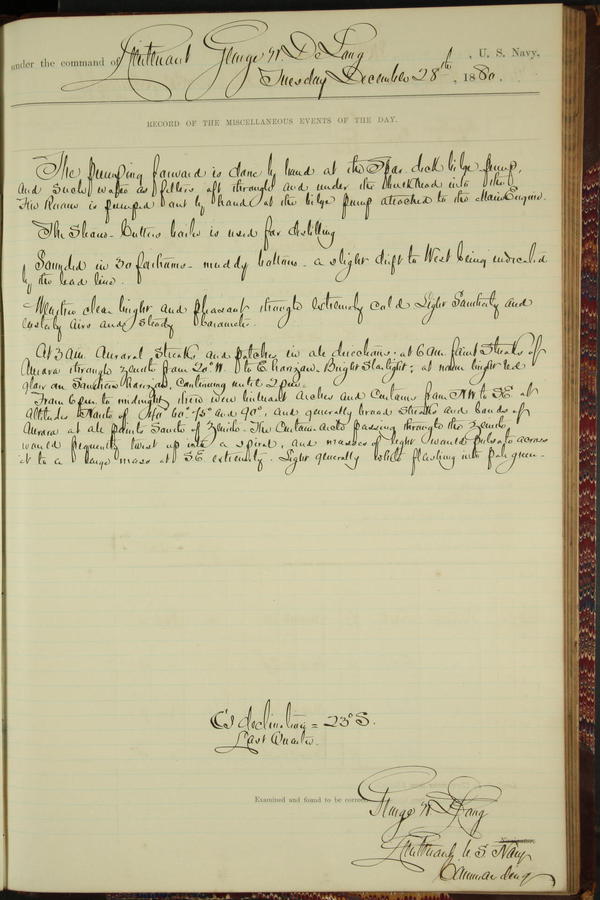 under the command of Lieutenant George W. De Long, U. S. Navy,
Tuesday December 28th, 1880.
RECORD OF THE MISCELLANEOUS EVENTS OF THE DAY.
The pumping forward is done by hand at the Spar deck bilge pump,
and such water as filters aft through and under the bulkhead into the
Fire Room is pumped out by hand at the bilge pump attached to the Main Engine.
The Steam-Cutters boiler is used for distilling
Sounded in 30 fathoms - muddy bottom - a slight drift to West being indicated
by the lead line.
Weather clear bright and pleasant though extremely cold Light Southerly and
Easterly airs and steady barometer.
At 3 a.m. Auroral streaks and patches in all directions: at 6 a.m. faint streaks of
Aurora through zenith from 20° W. to E. horizon. Bright Starlight; at noon bright red
glow on Southern horizon, Continuing until 2 p.m.
From 6 p.m. to midnight there were brilliant arches and Curtains from NW to SE at
altitudes South of 40° 60° 75° and 90°, and generally broad streaks and bands of
Aurora at all points South of Zenith. The Curtain arcs passing through the zenith
would frequently twist up into a spiral, and masses of light would pulsate across
it to a large mass at SE extremity. Light generally white flashing into pale green.
declination = 23° S.
Last Quarter.
Examined and found to be correct.
George W. De Long
Lieutenant, U. S. Navy
Commanding